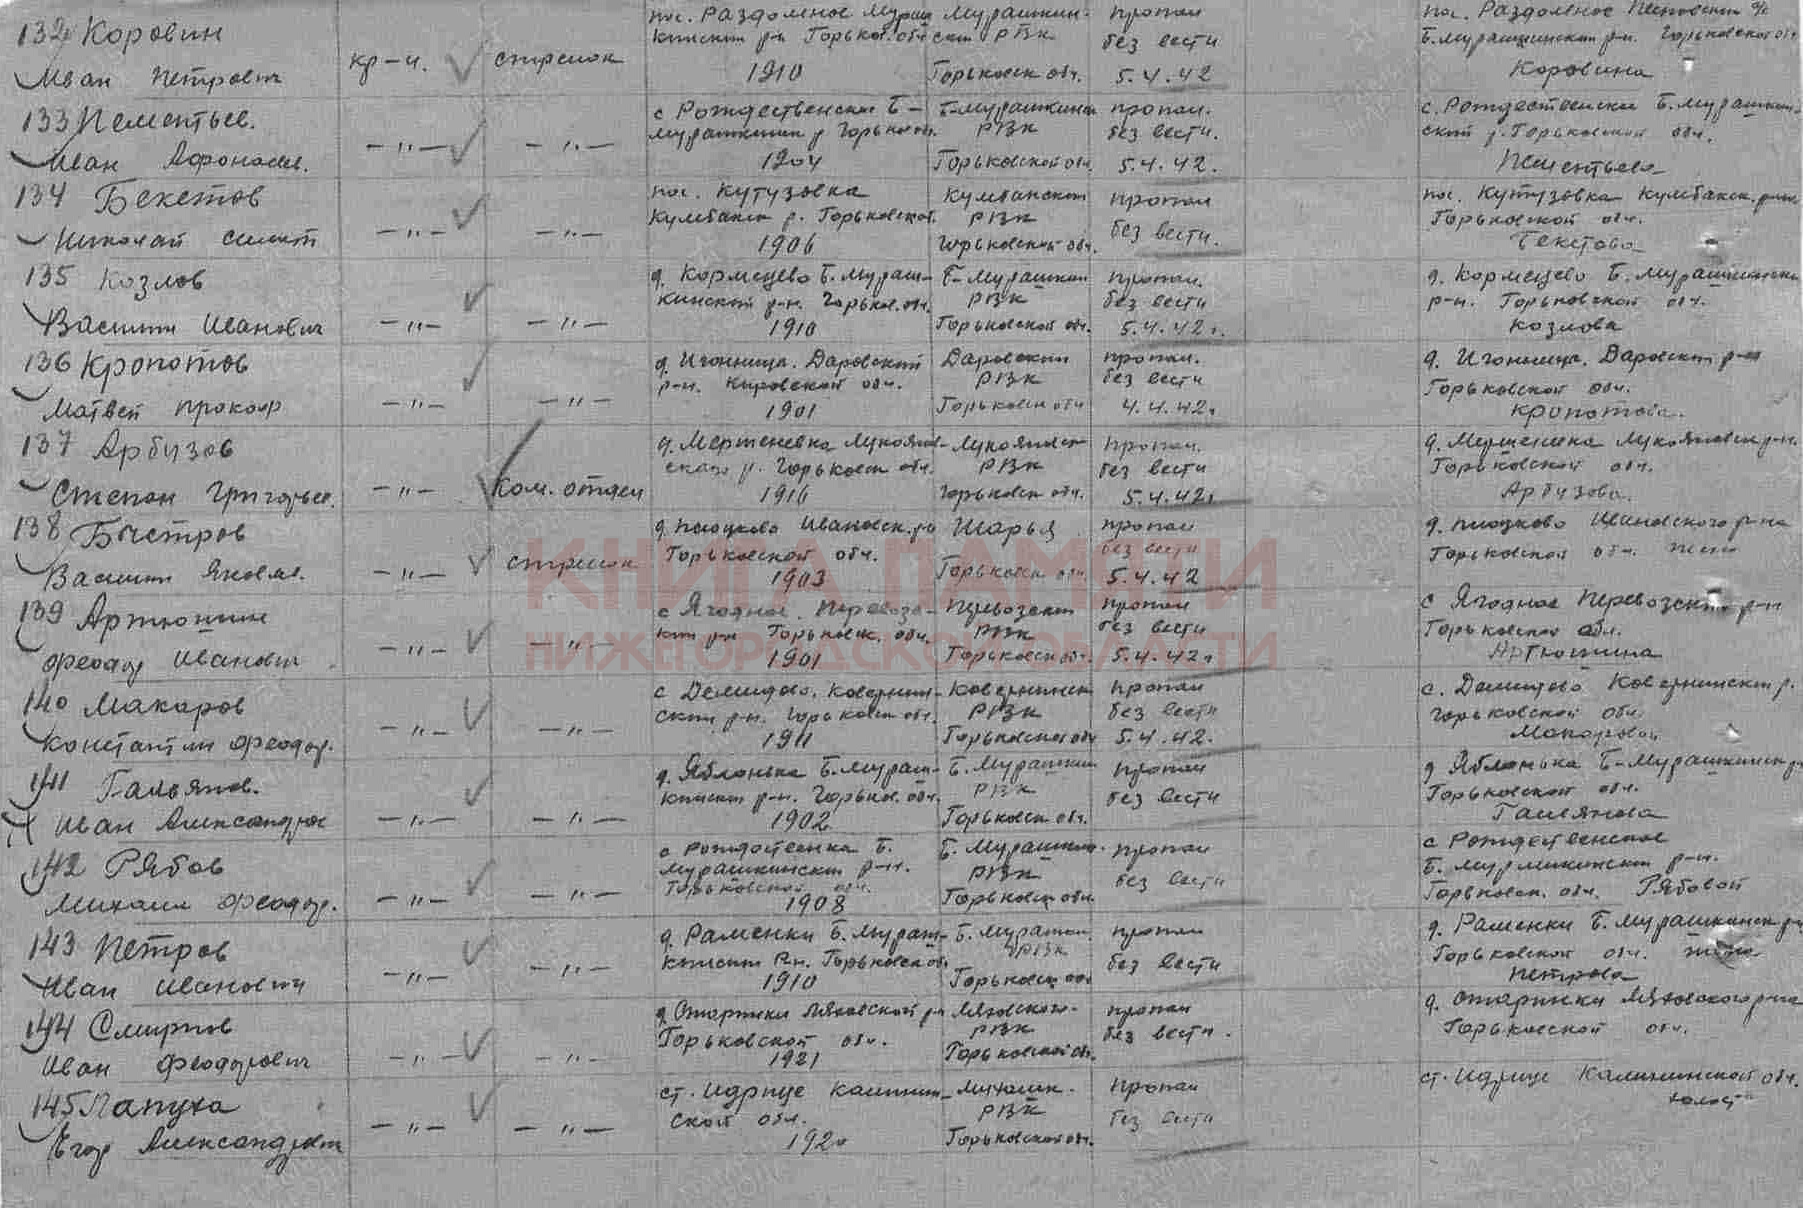 132 Коровин
Иван Петрович
кр-ц.
стрелок
пос. Раздольное Мураш
кинский р-н Горьков. обл
1910
Мурашкин-
ский РВК
Горьковск обл.
пропал
без вести
5.4.42
пос. Раздольное
Б.Мурашкинский р-н. Горьковской обл
Коровина
133
Иван Афонасьев.
— " —
— " —
с Рождественский Б-
Мурашкинский р Горьков обл.
1904
Б-Мурашкинск
РВК
Горьковской обл.
пропал.
без вести.
5.4.42.
с. Рождественский Б. Мурашкин-
ский р. Горьковской обл.
134 Бекетов
Николай
— " —
— " —
пос. Кутузовка
Кулебакск р. Горьковской
1906
Кулебакский
РВК
Горьковской обл.
пропал
без вести.
пос. Кутузовка Кулебакск. р-н
Горьковской обл.
Бекетова
135 Козлов
Василий Иванович
— " —
— " —
д. Кормецево Б. Мураш-
кинский р-н. Горьков. обл.
1910
Б-Мурашкин
РВК
Горьковской обл.
пропал.
без вести
5.4.42г.
д. Кормецево Б. Мурашкинский
р-н. Горьковской обл.
Козлова
136 Кропотов
Матвей Прокоф
— " —
— " —
д. Игонница. Даровский
р-н. Кировской обл.
1901
Даровский
РВК
Горьковск обл
пропал.
без вести
4.4.42г.
д. Игонница. Даровский р-н
Горьковской обл.
Кропотова.
137 Арбузов
Степан Григорьев.
— " —
Ком. отдел
ского р. Горьковск обл.
1916
Лукояновск
РВК
Горьковск обл.
пропал.
без вести
5.4.42г
Горьковской обл.
Арбузова.
138 Быстров
Василий Яковл.
— " —
стрелок
Горьковской обл.
1903
Шарья
Горьковск обл.
пропал
без вести
5.4.42
Горьковской обл. жена
139 Артюшин
Феодор Иванович
— " —
— " —
с Ягодное. Перевозс-
кий р-н Горьковск. обл.
1901
Перевозский
РВК
Горьковской обл.
пропал
без вести
5.4.42г
с Ягодное Перевозский р-н
Горьковской обл.
Артюшина
140 Макаров
Константин Феодор.
— " —
— " —
с Демидово. Ковернин-
ский р-н. Горьковск обл.
1911
Ковернинск
РВК
Горьковской обл
пропал
без вести
5.4.42.
с. Демидово Ковернинский р.
Горьковской обл.
141 Гальянов.
Иван Александров
— " —
— " —
д. Яблонька Б. Мураш-
кинский р-н. Горьков. обл.
1902
Б. Мурашкин
РВК
Горьковск обл.
пропал
без вести
д Яблонька Б-Мурашкинск р
Горьковской обл.
Гальянова
142 Рябов
Михаил Феодор.
— " —
— " —
с Рождественка Б.
Мурашкинский р-н.
Горьковской обл.
1908
Б. Мурашкин.
РВК
Горьковской обл.
пропал
без вести
с Рождественское
Б. Мурашкинский р-н.
Горьковск. обл. Рябовой
143 Петров
Иван Иванович
— " —
— " —
д. Раменки Б. Мураш-
кинский Р-н. Горьковской об
1910
Б. Мурашк.
РВК
Горьковск обл
пропал
без вести
д. Раменки Б. Мурашкинск р-н
Горьковской обл. жена
Петрова
144 Смирнов
Иван Феодорович
— " —
— " —
Горьковской обл.
1921
РВК
Горьковской об.
пропал
без вести.
Горьковской обл.
145 Лапуха
Егор Александрович
— " —
— " —
ст. Идрице Калинин-
ской обл.
1920
РВК
Горьковской обл.
пропал
без вести
ст. Идрице Калининской обл.
холост
КНИГА ПАМЯТИ
НИЖЕГОРОДСКОЙ ОБЛАСТИ